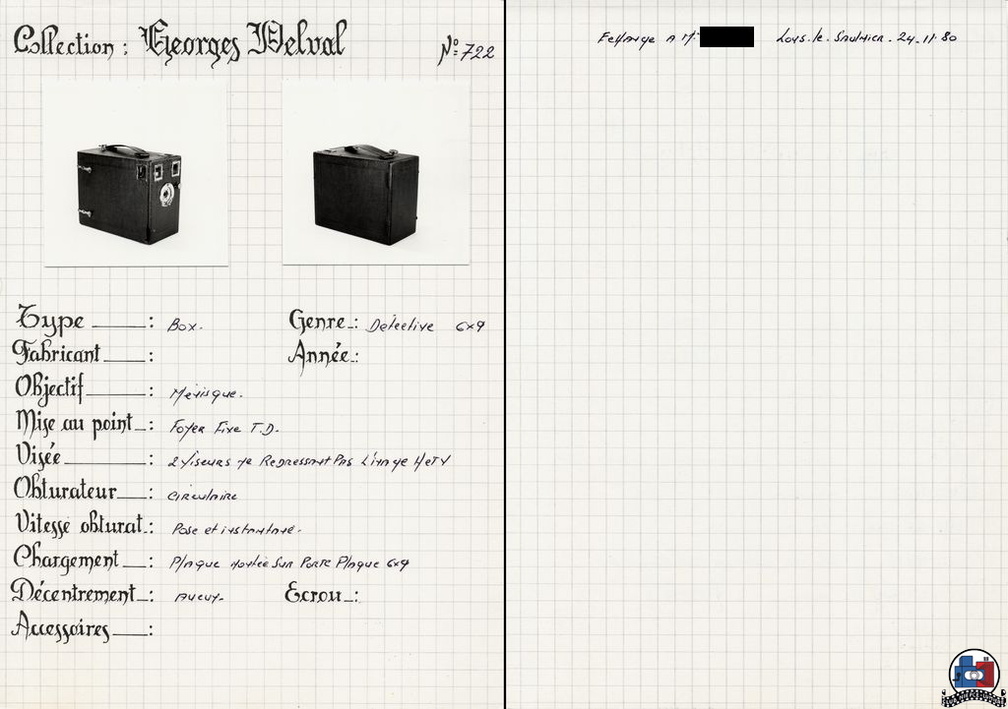 Collection : Georges Delval N° 722
Type : Box.
Genre : Détective 6x9
Fabricant :
Année :
Objectif : Ménisque.
Mise au point : Foyer Fixe T.D.
Visée : 2 Viseurs ne Redressant Pas L'image H et V
Obturateur : Circulaire
Vitesse obturat. : Pose et instantané.
Chargement : Plaque montée Sur Porte Plaque 6x9
Décentrement : Aucun.
Ecrou :
Accessoires :
A Mr Lons. le. Saulnier. 24.11.80